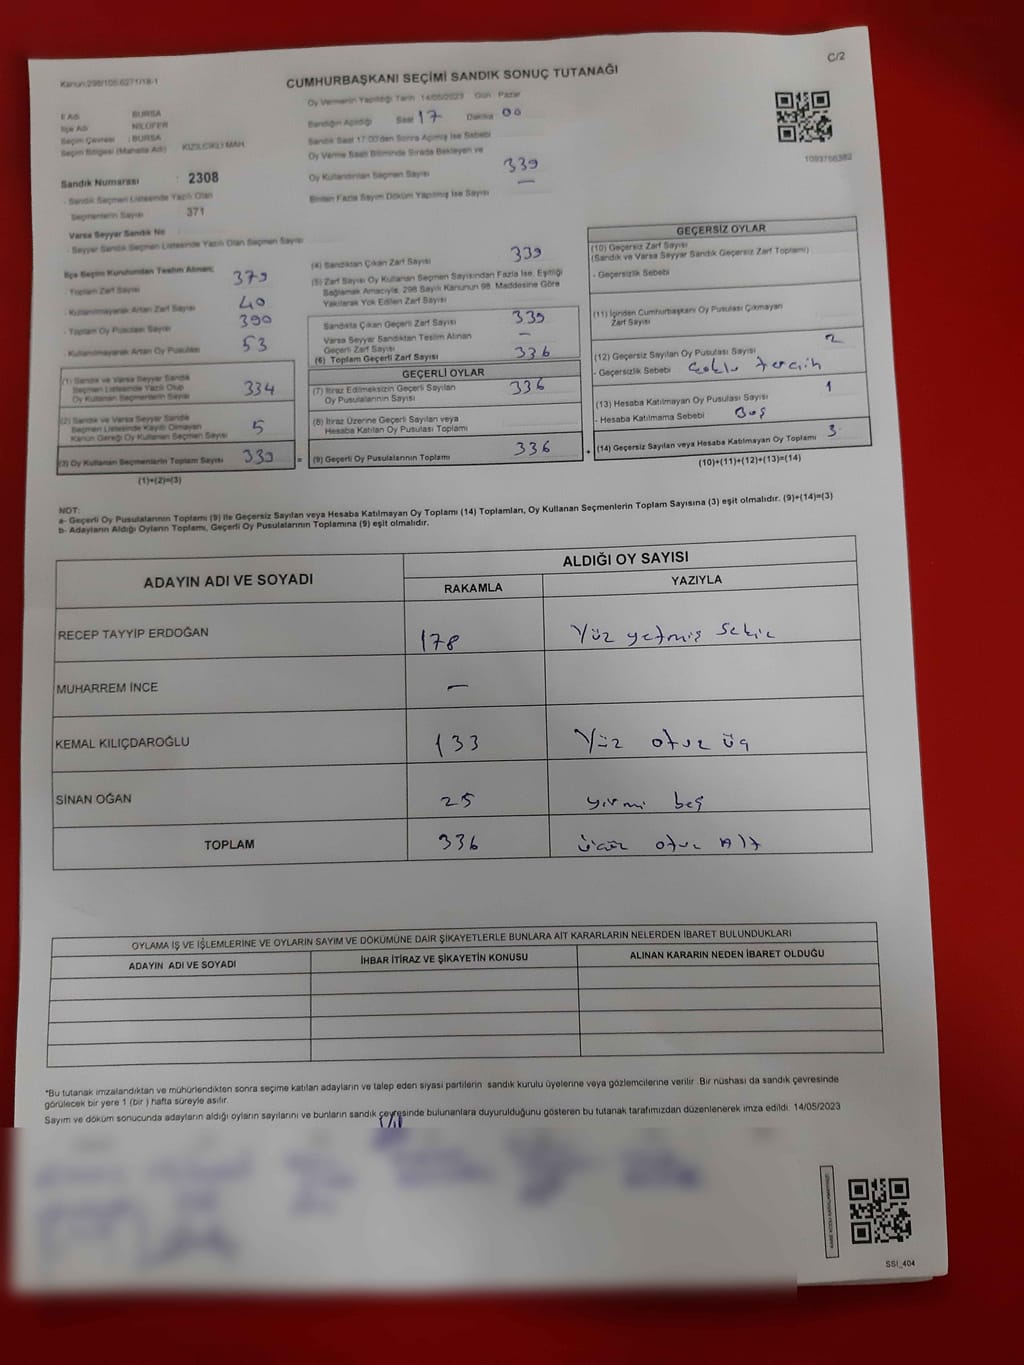 Kanun:298/105.6271/18-1
C/2
CUMHURBAŞKANI SEÇİMİ SANDIK SONUÇ TUTANAĞI
İl Adı : BURSA
İlçe Adı : NİLÜFER
Seçim Çevresi : BURSA
Seçim Bölgesi (Mahalle Adı) KIZILCIKLI MAH.
Sandık Numarası : 2308
- Sandık Seçmen Listesinde Yazılı Olan
Seçmenlerin Sayısı 371
Varsa Seyyar Sandık No
- Seyyar Sandık Seçmen Listesinde Yazılı Olan Seçmen Sayısı
Oy Vermenin Yapıldığı Tarih 14/05/2023 Gün Pazar
Sandığın Açıldığı Saat 17 Dakika 00
Sandık Saat 17:00'den Sonra Açılmış İse Sebebi
Oy Verme Saati Bitiminde Sırada Bekleyen ve
Oy Kullandırılan Seçmen Sayısı 339
Birden Fazla Sayım Döküm Yapılmış İse Sayısı —
1093766382
İlçe Seçim Kurulundan Teslim Alınan;
- Toplam Zarf Sayısı 379
- Kullanılmayarak Artan Zarf Sayısı 40
- Toplam Oy Pusulası Sayısı 390
- Kullanılmayarak Artan Oy Pusulası 53
(1) Sandık ve Varsa Seyyar Sandık
Seçmen Listesinde Yazılı Olup
Oy Kullanan Seçmenlerin Sayısı 334
(2) Sandık ve Varsa Seyyar Sandık
Seçmen Listesinde Kayıtlı Olmayan
Kanun Gereği Oy Kullanan Seçmen Sayısı 5
(3) Oy Kullanan Seçmenlerin Toplam Sayısı 339
(1)+(2)=(3)
(4) Sandıktan Çıkan Zarf Sayısı 339
(5) Zarf Sayısı Oy Kullanan Seçmen Sayısından Fazla İse, Eşitliği
Sağlamak Amacıyla, 298 Sayılı Kanunun 98. Maddesine Göre
Yakılarak Yok Edilen Zarf Sayısı
Sandıkta Çıkan Geçerli Zarf Sayısı 339
Varsa Seyyar Sandıktan Teslim Alınan
Geçerli Zarf Sayısı —
(6) Toplam Geçerli Zarf Sayısı 336
GEÇERLİ OYLAR
(7) İtiraz Edilmeksizin Geçerli Sayılan
Oy Pusulalarının Sayısı 336
(8) İtiraz Üzerine Geçerli Sayılan veya
Hesaba Katılan Oy Pusulası Toplamı
= (9) Geçerli Oy Pusulalarının Toplamı 336 +
GEÇERSİZ OYLAR
(10) Geçersiz Zarf Sayısı
(Sandık ve Varsa Seyyar Sandık Geçersiz Zarf Toplamı)
- Geçersizlik Sebebi
(11) İçinden Cumhurbaşkanı Oy Pusulası Çıkmayan
Zarf Sayısı
(12) Geçersiz Sayılan Oy Pusulası Sayısı 2
- Geçersizlik Sebebi Çoklu tercih
(13) Hesaba Katılmayan Oy Pusulası Sayısı 1
- Hesaba Katılmama Sebebi Boş
(14) Geçersiz Sayılan veya Hesaba Katılmayan Oy Toplamı 3
(10)+(11)+(12)+(13)=(14)
NOT:
a- Geçerli Oy Pusulalarının Toplamı (9) ile Geçersiz Sayılan veya Hesaba Katılmayan Oy Toplamı (14) Toplamları, Oy Kullanan Seçmenlerin Toplam Sayısına (3) eşit olmalıdır. (9)+(14)=(3)
b- Adayların Aldığı Oyların Toplamı, Geçerli Oy Pusulalarının Toplamına (9) eşit olmalıdır.
ADAYIN ADI VE SOYADI
ALDIĞI OY SAYISI
RAKAMLA
YAZIYLA
RECEP TAYYİP ERDOĞAN 178 Yüz yetmiş sekiz
MUHARREM İNCE —
KEMAL KILIÇDAROĞLU 133 Yüz otuz üç
SİNAN OĞAN 25 yirmi beş
TOPLAM 336 üçyüz otuz Altı
OYLAMA İŞ VE İŞLEMLERİNE VE OYLARIN SAYIM VE DÖKÜMÜNE DAİR ŞİKAYETLERLE BUNLARA AİT KARARLARIN NELERDEN İBARET BULUNDUKLARI
ADAYIN ADI VE SOYADI
İHBAR İTİRAZ VE ŞİKAYETİN KONUSU
ALINAN KARARIN NEDEN İBARET OLDUĞU
*Bu tutanak imzalandıktan ve mühürlendikten sonra seçime katılan adayların ve talep eden siyasi partilerin sandık kurulu üyelerine veya gözlemcilerine verilir. Bir nüshası da sandık çevresinde
görülecek bir yere 1 (bir) hafta süreyle asılır.
Sayım ve döküm sonucunda adayların aldığı oyların sayılarını ve bunların sandık çevresinde bulunanlara duyurulduğunu gösteren bu tutanak tarafımızdan düzenlenerek imza edildi. 14/05/2023
SSI_404